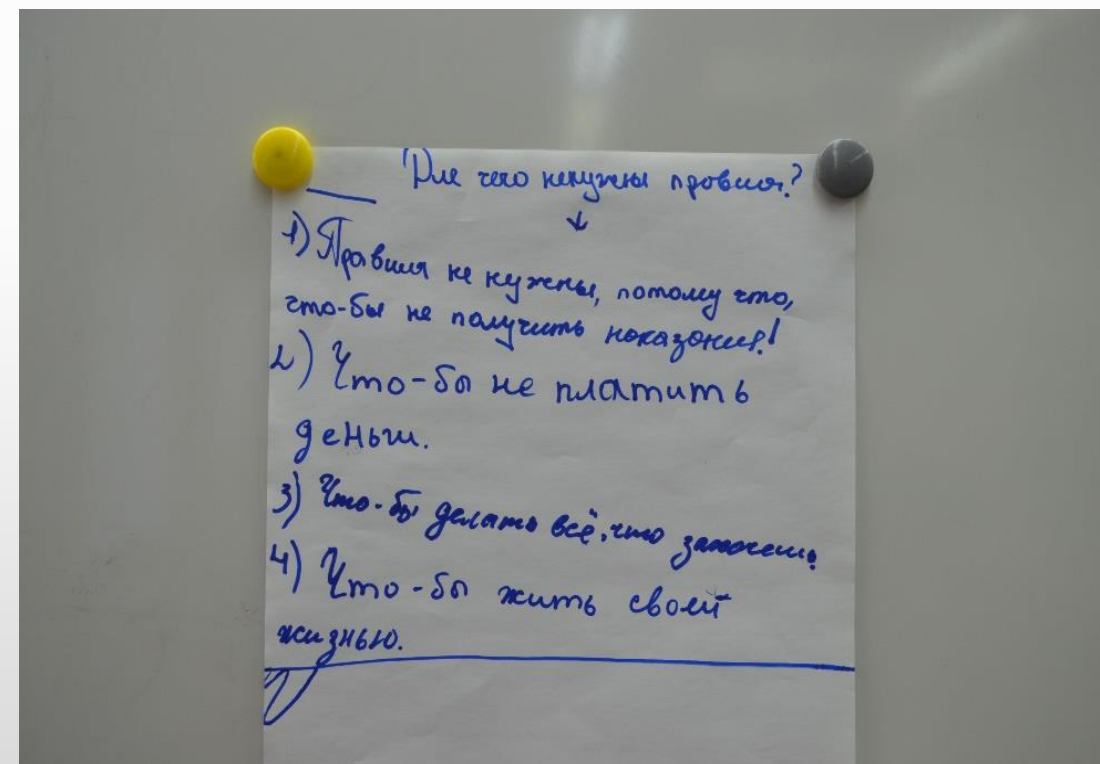 Для чего ненужны правила?
1) Правила не нужны, потому что,
что-бы не получить наказания!
2) Что-бы не платить
деньги.
3) Что-бы делать всё, что захочешь.
4) Что-бы жить своей
жизнью.